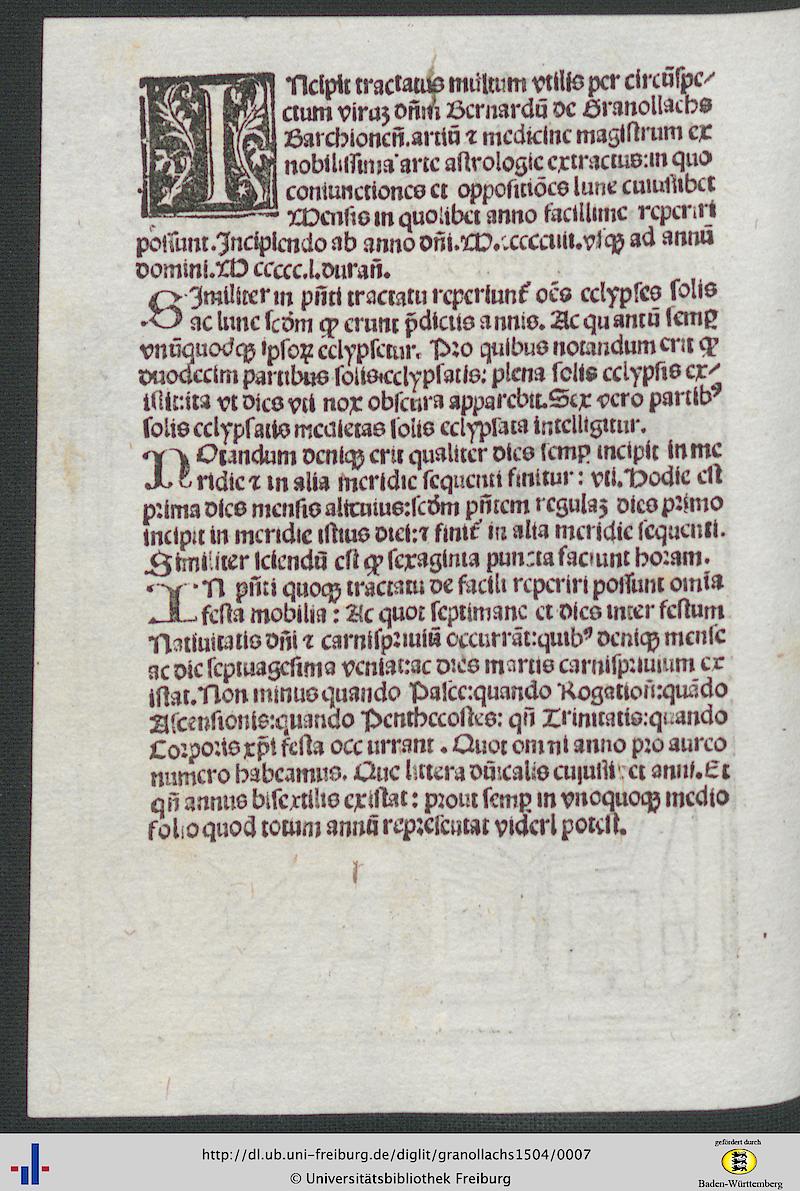 INcipit tractatus multum vtilis per circũspe/
ctum viruꝫ dñm Bernardũ de Granollachs
Barchionen̄.artiũ ⁊ medicine magistrum ex
nobilissima arte astrologie extractus:in quo
coniunctiones et oppositiões lune cuiuslibet
Mensis in quolibet anno facillime reperiri
possunt.Incipiendo ab anno dñi.M.ccccciiii.vsqꝫ ad annũ
domini.M ccccc.l.duran̄.
SImiliter in pñti tractatu reperiunt᷑ oẽs eclypses solis
ac lune scďm ꝙ erunt p̄dictis annis. Ac quantũ semꝑ
vnũquodqꝫ ipsoꝝ eclypsetur. Pro quibus notandum erit ꝙ
duodecim partibus solis eclypsatis: plena solis eclypsis ex/
istit:ita vt dies vti nox obscura apparebit.Sex vero partibꝰ
solis eclypsatis medietas solis eclypsata intelligitur.
NOtandum deniqꝫ erit qualiter dies semꝑ incipit in me
ridie ⁊ in alia meridie sequenti finitur: vti.Hodie est
prima dies mensis alicuius:scďm pñtem regulaꝫ dies primo
incipit in meridie istius diei:⁊ finit᷑ in alia meridie sequenti.
Similiter sciendũ est ꝙ sexaginta puncta faciunt horam.
IN pñti quoqꝫ tractatu de facili reperiri possunt omĩa
festa mobilia: Ac quot septimane et dies inter festum
Natiuitatis dñi ⁊ carnispriuiũ occurrãt:quibꝰ deniqꝫ mense
ac die septuagesima veniat:ac dies martis carnispriuium ex
istat.Non minus quando Pasce:quando Rogation̄:quãdo
Ascensionis:quando Penthecostes: qñ Trinitatis:quando
Corporis xp̄i festa occurrant. Quot omni anno pro aureo
numero habeamus. Que littera dñicalis cuiusli et anni.Et
qñ annus bisextilis existat: prout semꝑ in vnoquoqꝫ medio
folio quod totum annũ representat videri potest.
http://dl.ub.uni-freiburg.de/diglit/granollachs1504/0007
© Universitätsbibliothek Freiburg
gefördert durch
Baden-Württemberg